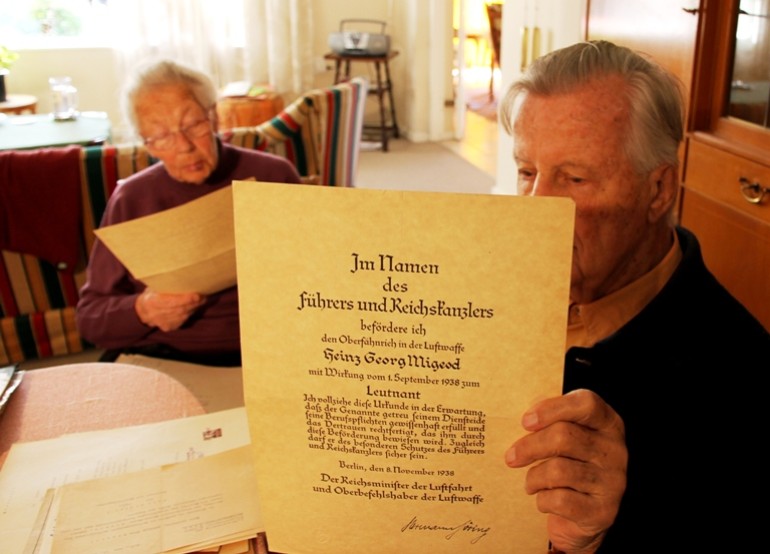 Im Namen
des
Führers und Reichskanzlers
befördere ich
den Oberfähnrich in der Luftwaffe
Heinz Georg Migeod
mit Wirkung vom 1. September 1938 zum
Leutnant
Ich vollziehe diese Urkunde in der Erwartung,
daß der Genannte getreu seinem Diensteide
seine Berufspflichten gewissenhaft erfüllt und
das Vertrauen rechtfertigt, das ihm durch
diese Beförderung bewiesen wird. Zugleich
darf er des besonderen Schutzes des Führers
und Reichskanzlers sicher sein.
Berlin, den 8. November 1938
Der Reichsminister der Luftfahrt
und Oberbefehlshaber der Luftwaffe
Hermann Göring